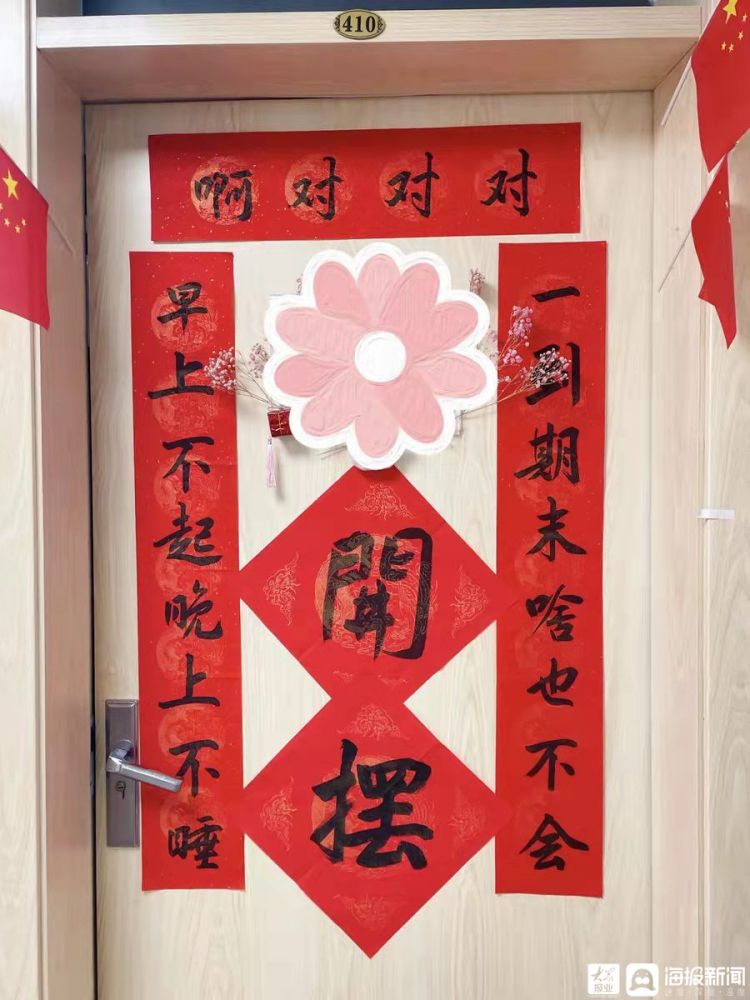 410
啊对对对
早上不起晚上不睡
一到期末啥也不会
開
摆
大众报业
海报新闻